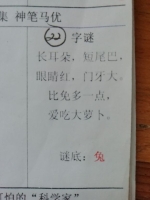 集 神笔马优
(22) 字谜
长耳朵，短尾巴，
眼睛红，门牙大。
比免多一点，
爱吃大萝卜。
谜底：兔
可怕的“科学家”